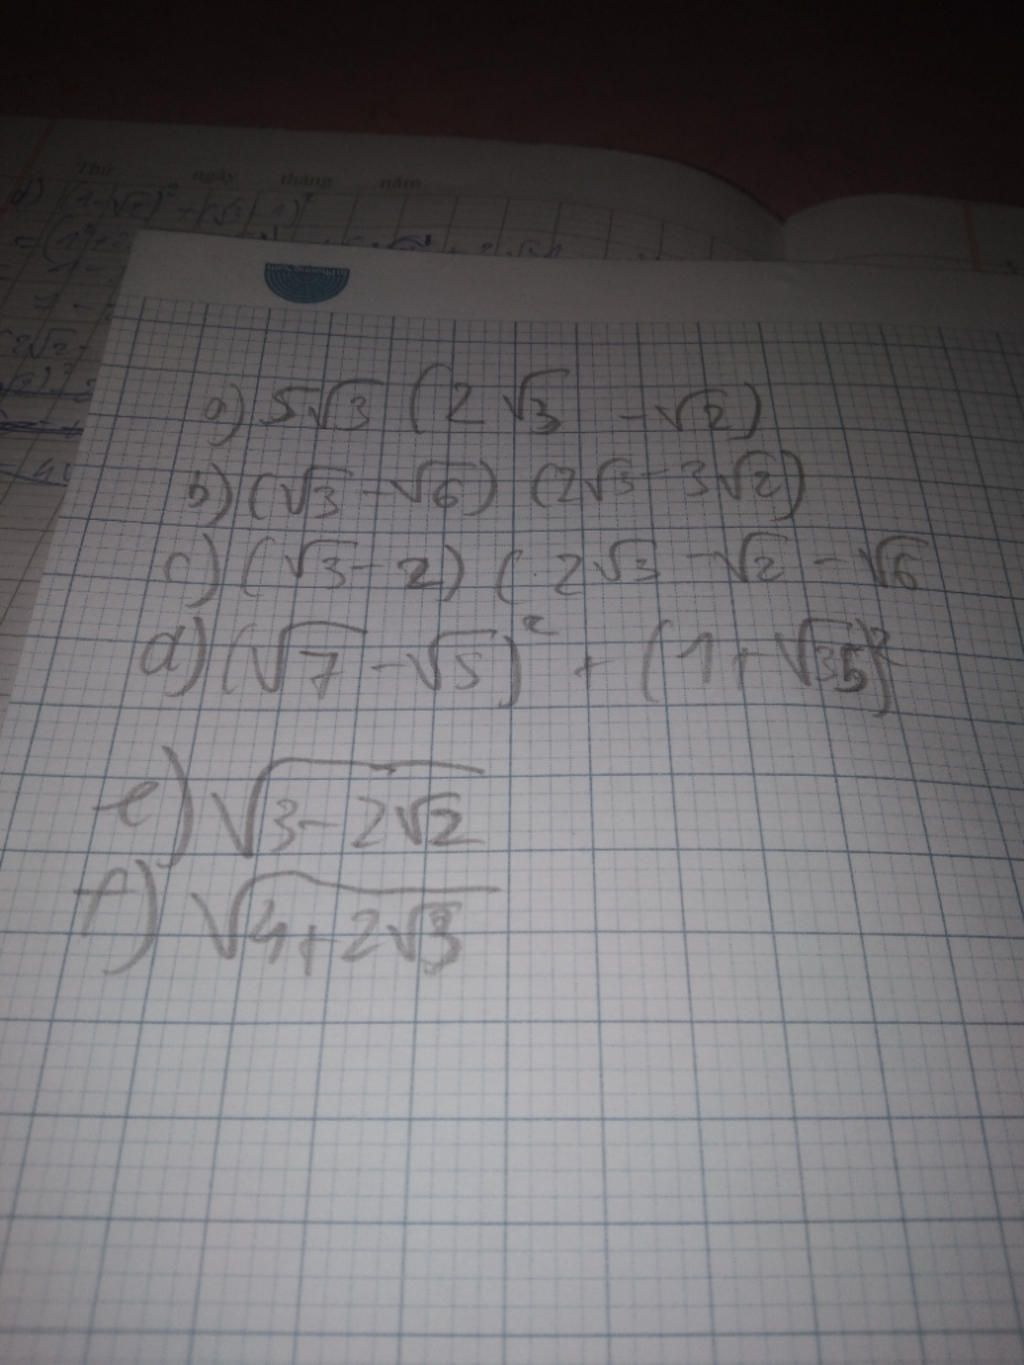 Thứ ngày tháng năm
a) 5√3 (2√3 - √2)
b) (√3 - √6) (2√3 - 3√2)
c) (√3 - 2) (2√3 - √2 - √6
d) (√7 - √5)² + (1 + √35)²
e) √(3 - 2√2)
f) √(4 + 2√3)